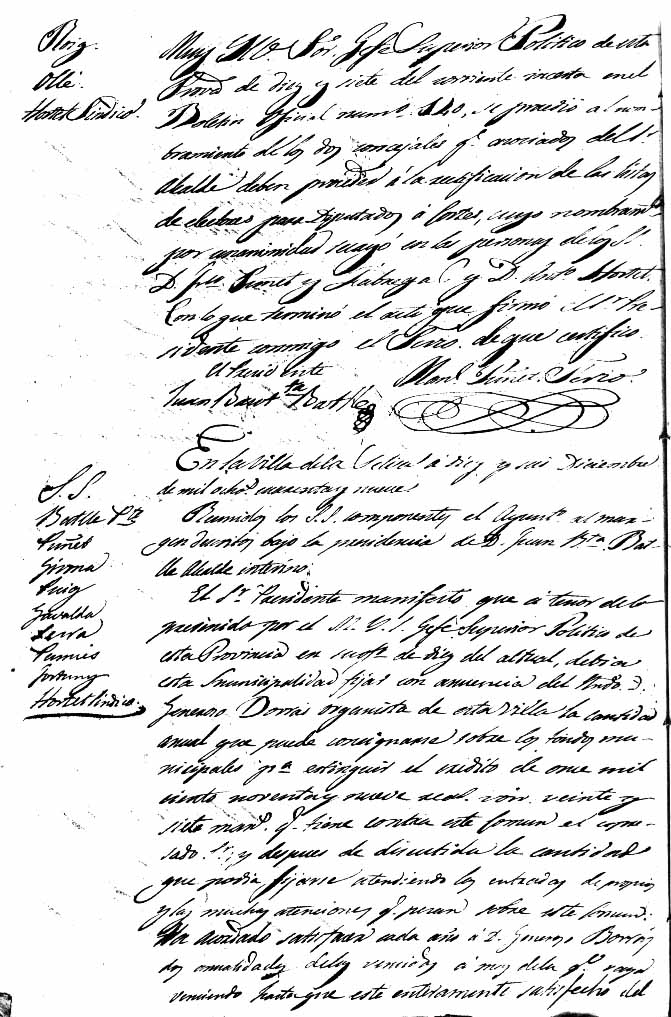 Roig.
Ollé.
Hortet Síndico.
Muy Ille. Sor. Gefe Superior Político de esta
Prova. de diez y siete del corriente inserta en el
Boletin Oficial numo. 140, se procedió al nom-
bramiento de los dos concejales qe. asociados del Sr.
Alcalde deben proceder á la rectificacion de las listas
de electores para Diputados á Cortes, cuyo nombramto.
por unanimidad recayó en las personas de los Sres.
D. Frco. Puñet y Fábrega y D. Anto. Hortet.
Con lo que terminó el acto que firmó el Sr. Pre-
sidente conmigo el Serio. de que certifico.
El Presidente
Juan Bauta. Batlle
Manl. Puñet. Serio.
En la Villa de la Selva á diez y seis Diciembre
de mil ocho. cuarenta y nueve.
S. S.
Batlle Pte.
Puñet
Girona
Puig
Gavaldá
Serra
Pamies
Fortuny
Hortet Síndico.
Reunidos los S.S. componentes el Ayunto. al mar-
gen descritos bajo la presidencia de D. Juan Bta. Bat-
lle Alcalde interino.
El Sr. Presidente manifestó que á tenor de lo
prevenido por el M. Y. S. Gefe Superior Político de
esta Provincia en su ofo. de diez del actual, debia
esta Municipalidad fijar con anuencia del Rndo. D.
Generoso Borrás organista de esta villa la cantidad
anual que puede consignarse sobre los fondos mu-
nicipales pa. estinguir el crédito de once mil
ciento noventa y nueve real. von. veinte y
siete mars. qe. tiene contra este comun el espre-
sado Sr.; y despues de discutida la cantidad
que podia fijarse atendiendo los entradas de propios
y las muchas atenciones qe. pesan sobre este comun.
Ha acordado satisfacer cada año á D. Generoso Borrás
dos anualidades de las vencidas á mas de la qe. vaya
venciendo hasta que esté enteramente satisfecho del